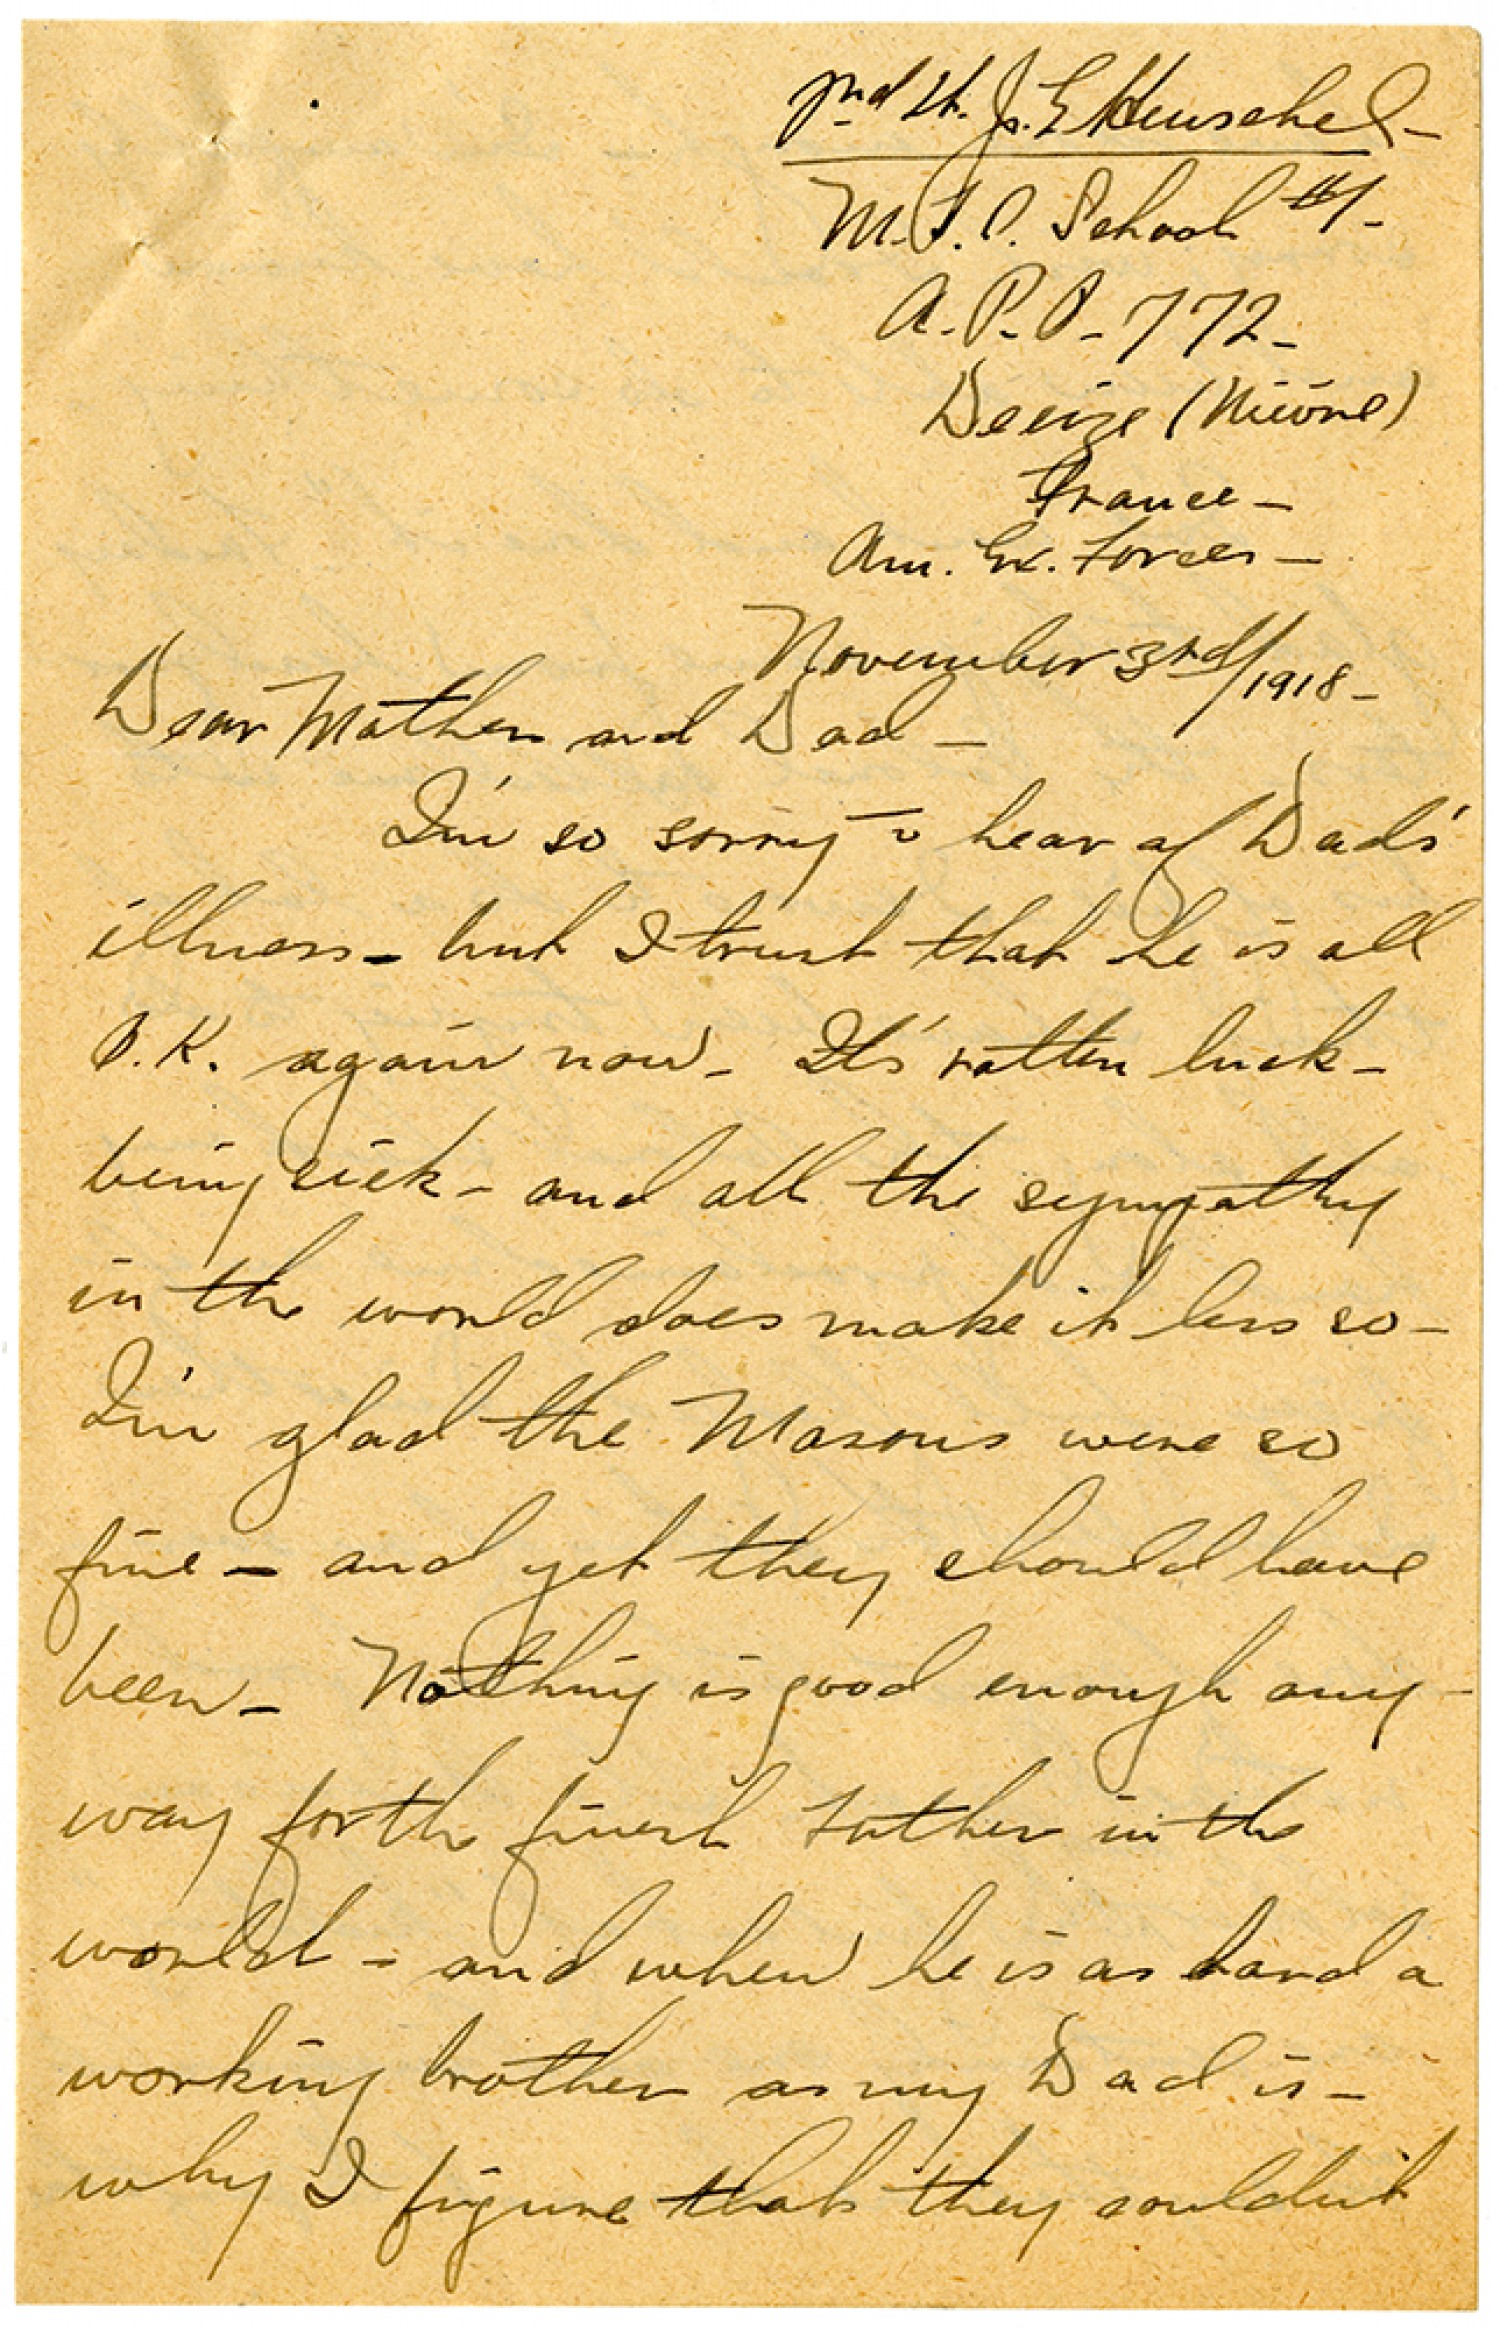 2nd Lt. J. E Henschel-
M.T.O. School #1-
A.P.O-772-
Decize (Nièvre)
France-
Am. Ex. Forces-
November 3rd/1918-
Dear Mother and Dad-
I'm so sorry to hear of Dad's
illness- but I trust that he is all
O.K. again now- It's rotten luck-
being sick- and all the sympathy
in the world does make it less so-
I'm glad the Masons were so
fine- and yet they should have
been- Nothing is good enough any-
way for the finest Father in the
world- and when he is as hard a
working brother as my Dad is-
why I figure that they couldn't